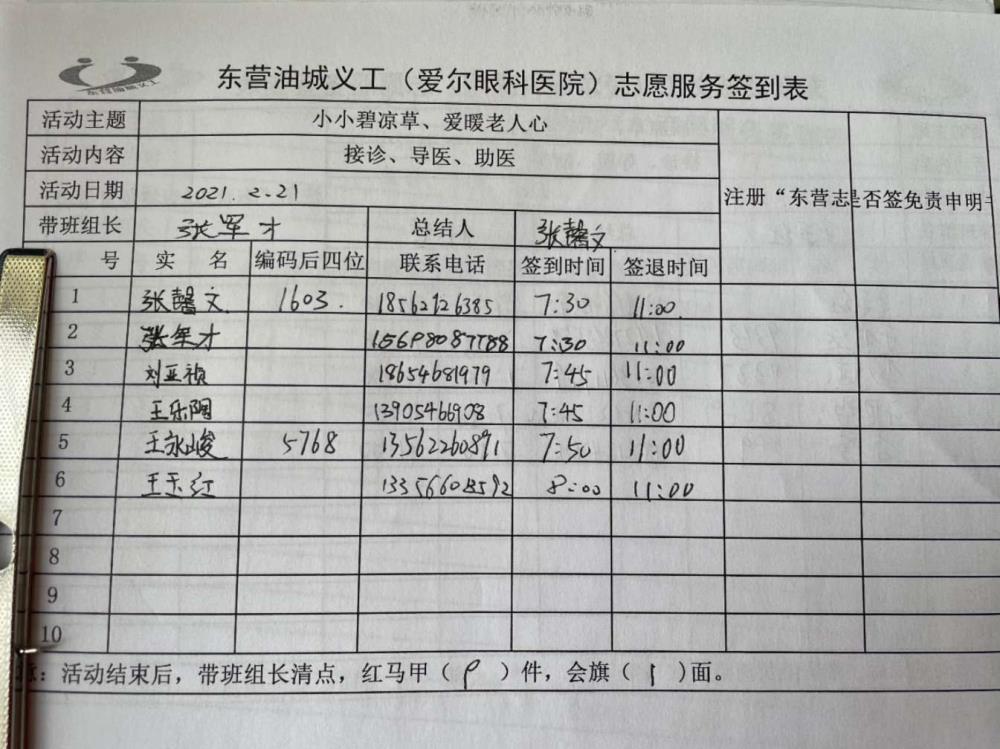 东营油城义工
东营油城义工（爱尔眼科医院）志愿服务签到表
活动主题 小小碧凉草、爱暖老人心
活动内容 接诊、导医、助医
活动日期 2021.2.21
注册“东营志 是否签免责申明书
带班组长 张军才 总结人 张馨文
号 实名 编码后四位 联系电话 签到时间 签退时间
1 张馨文 1603. 18562126385 7:30 11:00
2 张军才 15698087788 7:30 11:00
3 刘亚祯 18654681979 7:45 11:00
4 王乐陶 13905466908 7:45 11:00
5 王永峻 5768 13562260891 7:50 11:00
6 王玉红 8:00 11:00
7
8
9
10
意：活动结束后，带班组长清点，红马甲（9）件，会旗（1）面。